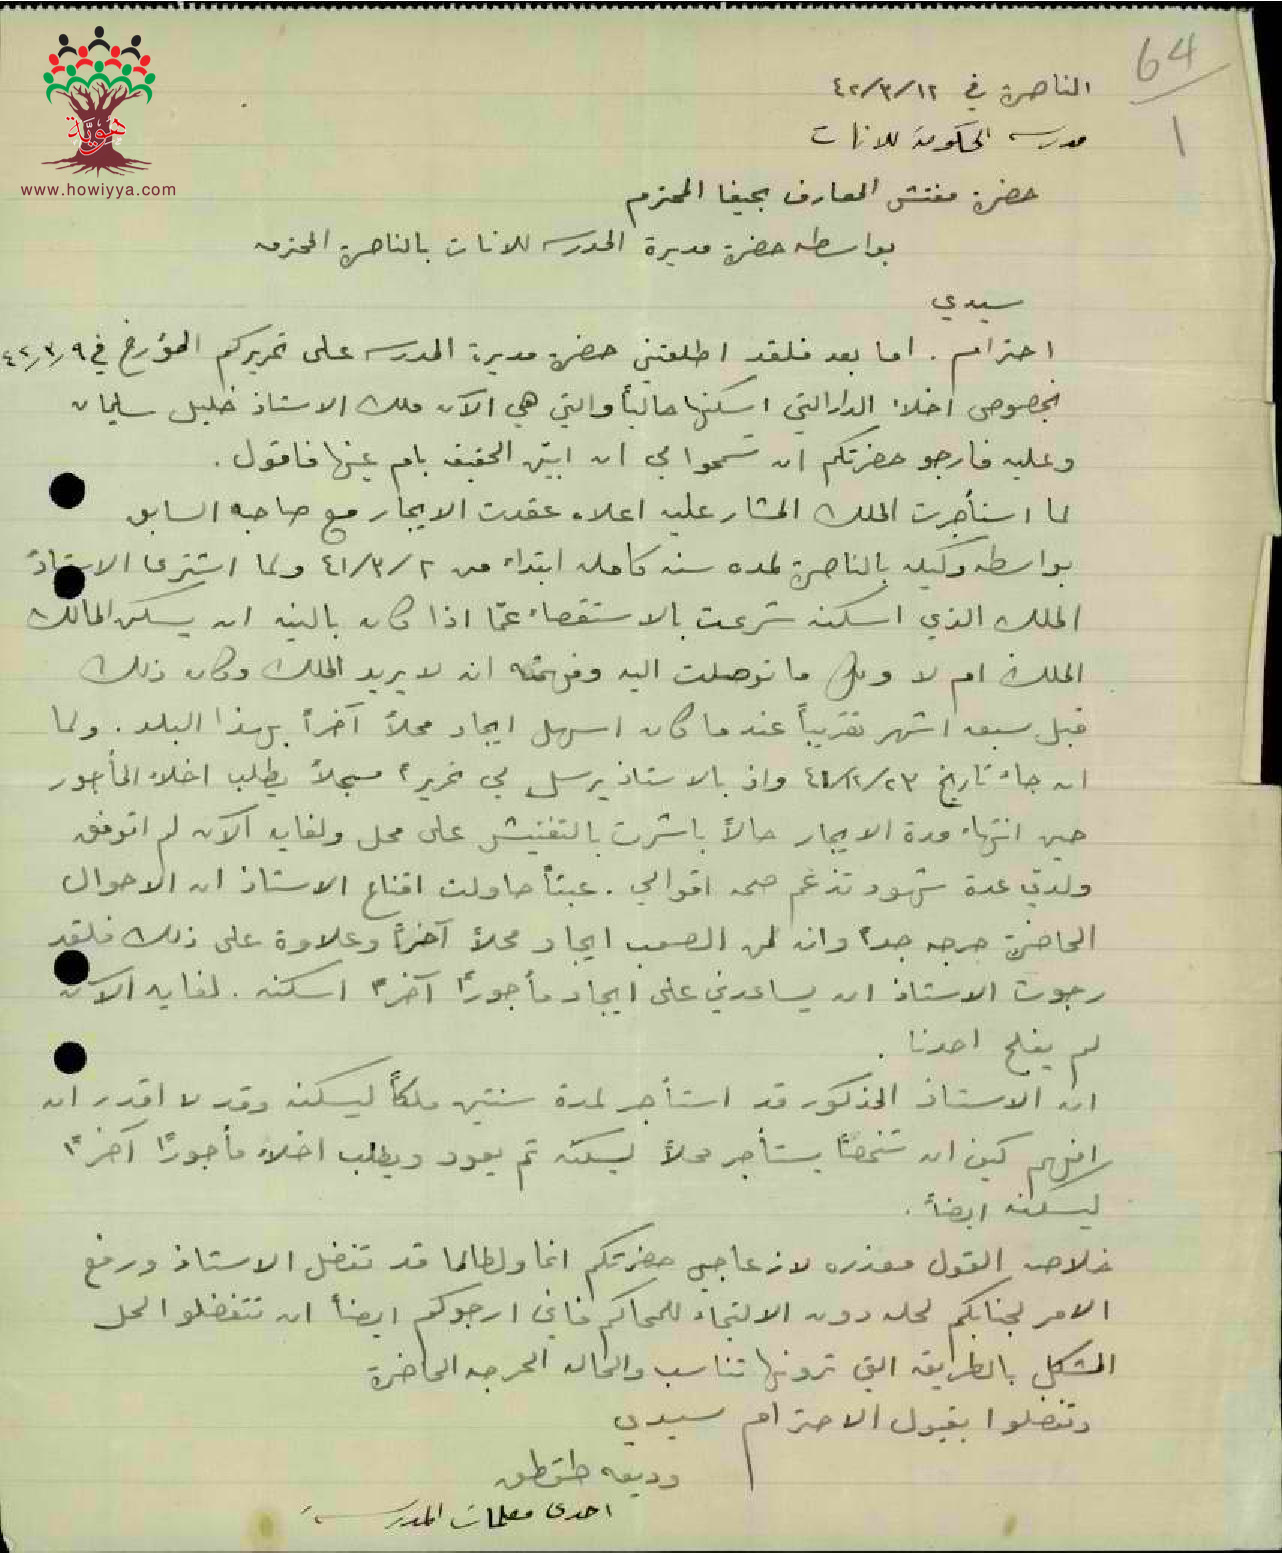 64
1
هوية
www.howiyya.com
الناصرة في ١٢/٣/٤٢
مدرسة الحكومة للاناث
حضرة مفتش المعارف بحيفا المحترم
بواسطة حضرة مديرة المدرسة للاناث بالناصرة المحترمه
سيدي
احترام. اما بعد فلقد اطلعتني حضرة مديرة المدرسة على تحريركم المؤرخ في ٩/٣/٤٢
بخصوص اخلاء الدار التي اسكنها حالياً والتي هي الآن ملك الاستاذ خليل سليمان
وعليه فارجو حضرتكم ان تسمحوا لي ان ابين الحقيقة بام عينها فاقول.
لما استأجرت الملك المشار عليه اعلاه عقدت الايجار مع صاحبه السابق
بواسطة وكيله بالناصرة لمدة سنة كاملة ابتداء من ٢/٣/٤١ ولما اشترى الاستاذ
الملك الذي اسكنه شرعت بالاستقصاء عمّا اذا كان بالنية ان يسكن المالك
الملك ام لا وكل ما توصلت اليه وفهمته انه لا يريد الملك وكان ذلك
قبل سبعة اشهر تقريباً عندما كان اسهل ايجاد محلاً آخراً بهذا البلد. ولما
ان جاء تاريخ ٢٣/١٢/٤١ واذ بالاستاذ يرسل لي تحريراً مسجلاً يطلب اخلاء المأجور
حين انتهاء مدة الايجار حالاً باشرت بالتفتيش على محل ولغاية الآن لم اتوفق
ولدي عدة شهود تدعم صحة اقوالي. عبثاً حاولت اقناع الاستاذ ان الاحوال
الحاضرة حرجة جداً وانه لمن الصعب ايجاد محلاً آخراً وعلاوة على ذلك فلقد
رجوت الاستاذ ان يساعدني على ايجاد مأجوراً آخراً اسكنه. لغاية الآن
لم يفلح احدنا.
ان الاستاذ المذكور قد استأجر لمدة سنتين ملكاً ليسكنه وقد لا اقدر ان
افهم كيف ان شخصاً يستأجر محلاً ليسكنه ثم يعود ويطلب اخلاء مأجوراً آخراً
ليسكنه ايضاً.
خلاصة القول معذرة لازعاجي حضرتكم انما ولطالما قد تفضل الاستاذ ورفع
الامر لجنابكم لحله دون الالتجاء للمحاكم فاني ارجوكم ايضاً ان تتفضلوا لحل
المشكل بالطريقة التي ترونها تناسب والحالة الحرجة الحاضرة
وتفضلوا بقبول الاحترام سيدي
وديعة طقطق
احدى معلمات المدرسة